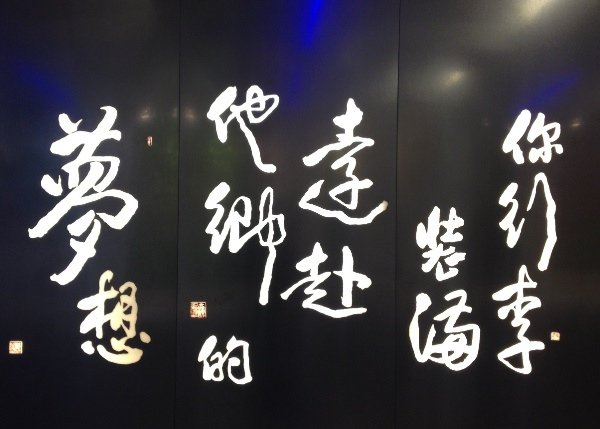 你行李
装滿
遠赴
他鄉
的
夢想